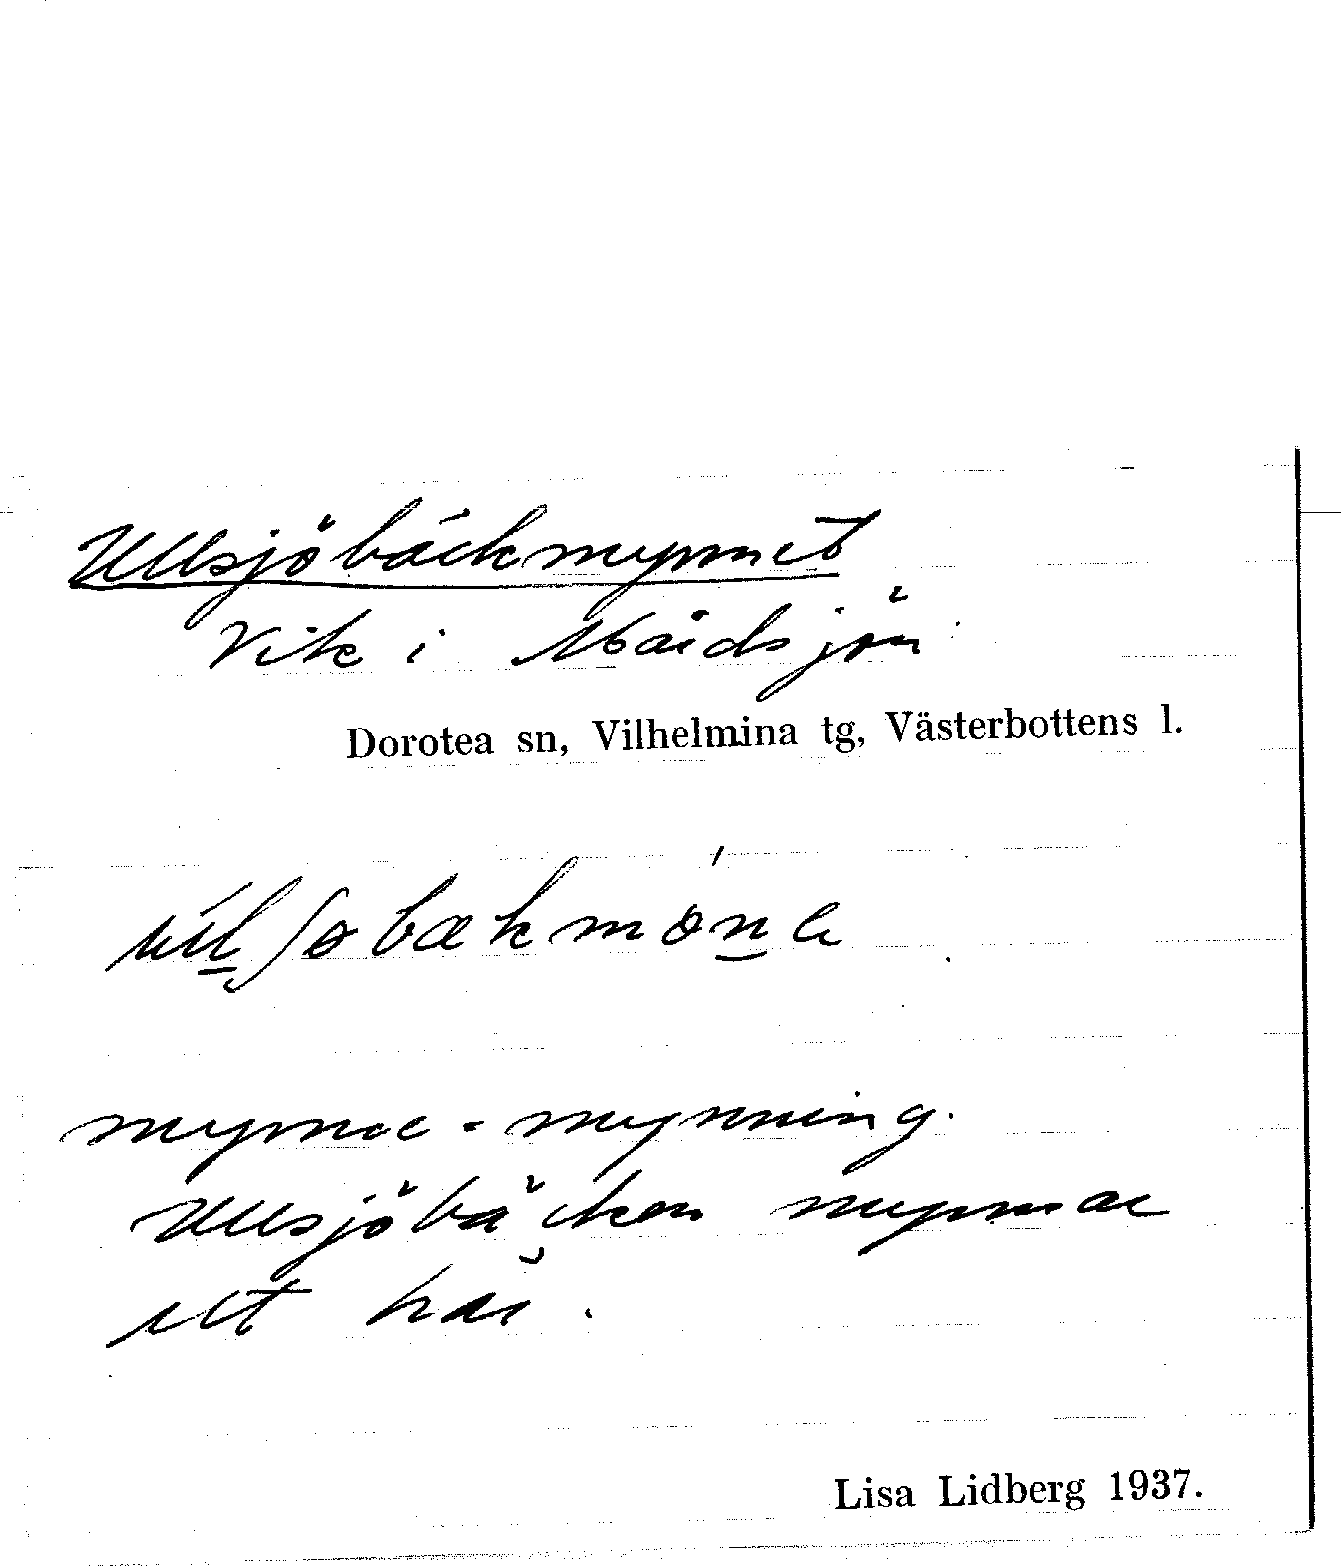 Ullsjöbäckmynnet
Vik i
Dorotea sn, Vilhelmina tg, Västerbottens l.
mynne - mynning.
Ullsjöbäcken mynnar
ut här.
Lisa Lidberg 1937.